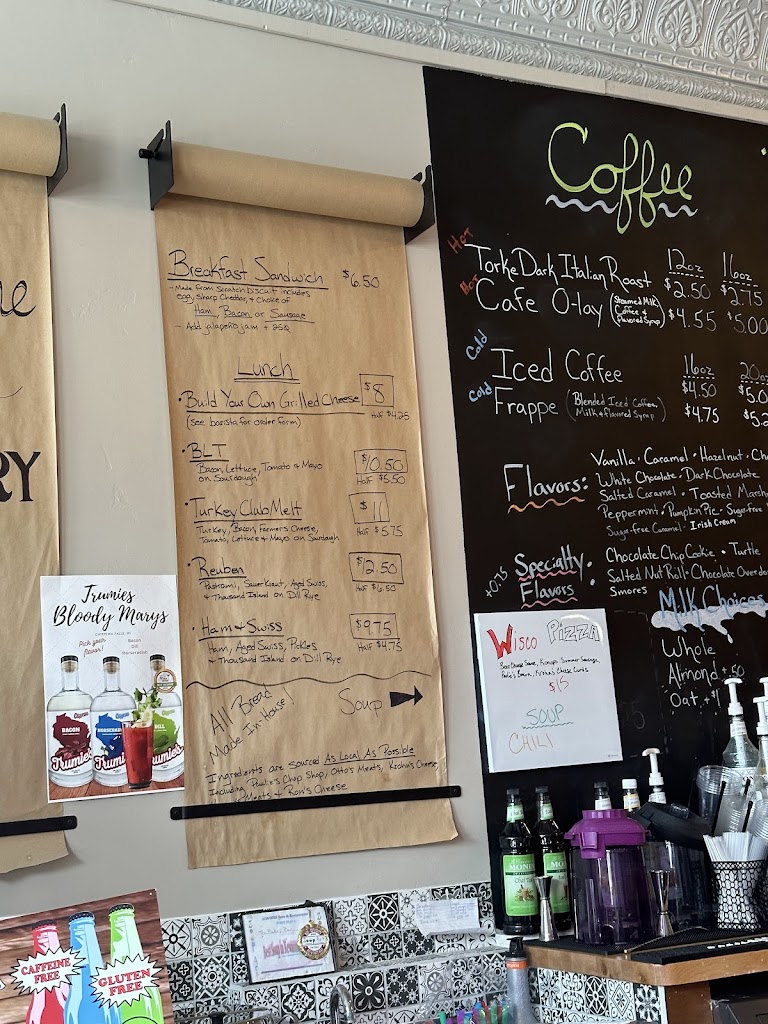 RY
Breakfast Sandwich $6.50
- Made from Scratch Biscuit includes
egg, Sharp Cheddar, + Choice of
Ham, Bacon or Sausage
- Add jalapeño jam + 25¢
Lunch
• Build Your Own Grilled Cheese $8
(See barista for order form) Half $4.25
• BLT $10.50
Bacon, Lettuce, Tomato + Mayo
on Sourdough Half $5.50
• Turkey Club Melt $11
Turkey, Bacon, Farmer's Cheese,
Tomato, Lettuce + Mayo on Sourdough Half $5.75
• Reuben $12.50
Pastrami, Sauerkraut, Aged Swiss,
+ Thousand Island on Dill Rye Half $6.50
• Ham + Swiss $9.75
Ham, Aged Swiss, Pickles
+ Thousand Island on Dill Rye Half $4.75
All Bread
Made In House!
Soup
Ingredients are sourced As Local As Possible
Including Paulie's Chop Shop, Otto's Meats, Krohn's Cheese,
Meats + Ron's Cheese
Trumies
Bloody Marys
Pick your
flavor!
Bacon
Dill
Horseradish
BACON
Trumies
HORSERADISH
Trumies
DILL
Trumies
CAFFEINE
FREE
GLUTEN
FREE
Coffee
12oz 16oz
Hot Torke Dark Italian Roast $2.50 $2.75
Hot Cafe O-lay (Steamed Milk, Coffee + flavored Syrup) $4.55 $5.00
16oz
Cold Iced Coffee $4.50
Cold Frappe (Blended Iced Coffee, Milk + flavored Syrup) $4.75
Flavors: Vanilla • Caramel • Hazelnut •
White Chocolate • Dark Chocolate
Salted Caramel • Toasted
Peppermint • Pumpkin Pie • Sugar-free
Sugar-free Caramel • Irish Cream
+0.75 Specialty Flavors: Chocolate Chip Cookie • Turtle
Salted Nut Roll • Chocolate
Smores
Milk Choices
Whole
Almond +.50
Oat +$1
Wisco Pizza
Beer Cheese Sauce, Summer Sausage,
Bacon, Krohn's Cheese Curds
$15
SOUP
CHILI
MONIN